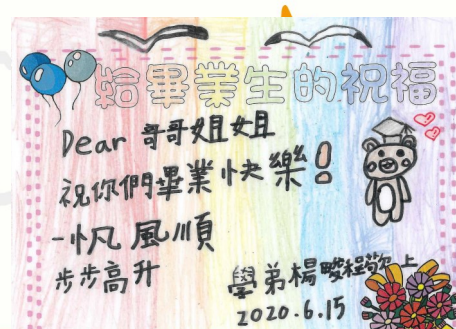 給畢業生的祝福
Dear 哥哥姐姐
祝你們畢業快樂！
一帆風順
步步高升
學弟楊畯程敬上
2020.6.15